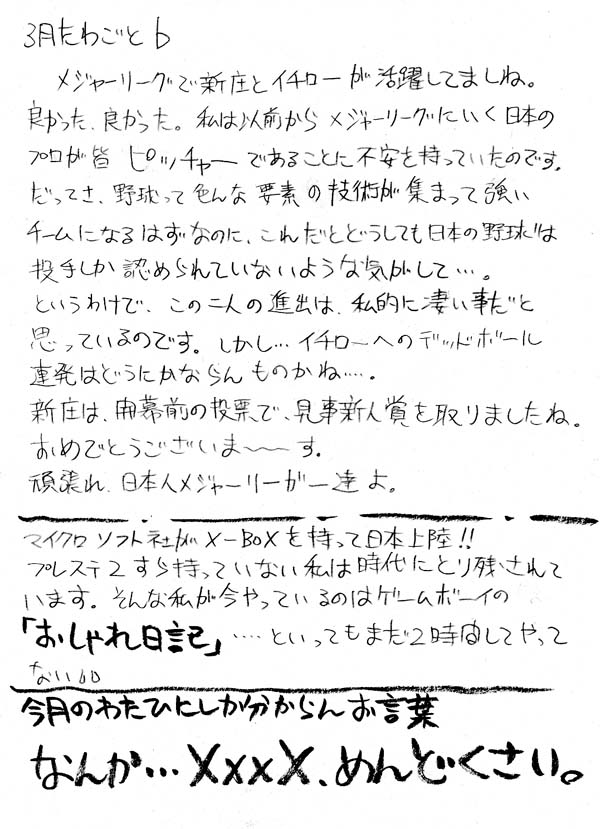 3月たわごと b
メジャーリーグで新庄とイチローが活躍してましね。
良かった、良かった。私は以前からメジャーリーグにいく日本の
プロが皆ピッチャーであることに不安を持っていたのです。
だってさ、野球って色んな要素の技術が集まって強い
チームになるはずなのに、これだとどうしても日本の野球は
投手しか認められていないような気がして…。
というわけで、この二人の進出は、私的に凄い事だと
思っているのです。しかし…イチローへのデッドボール
連発はどうにかならんものかね…。
新庄は、開幕前の投票で、見事新人賞を取りましたね。
おめでとうございま〜〜す。
頑張れ、日本人メジャーリーガー達よ。
マイクロソフト社がX-BOXを持って日本上陸!!
プレステ2すら持っていない私は時代にとり残されて
います。そんな私が今やっているのはゲームボーイの
「おしゃれ日記」…といってもまだ2時間してやって
ない。。
今月のわたひにしか分からんお言葉
なんか…XxxX、めんどくさい。